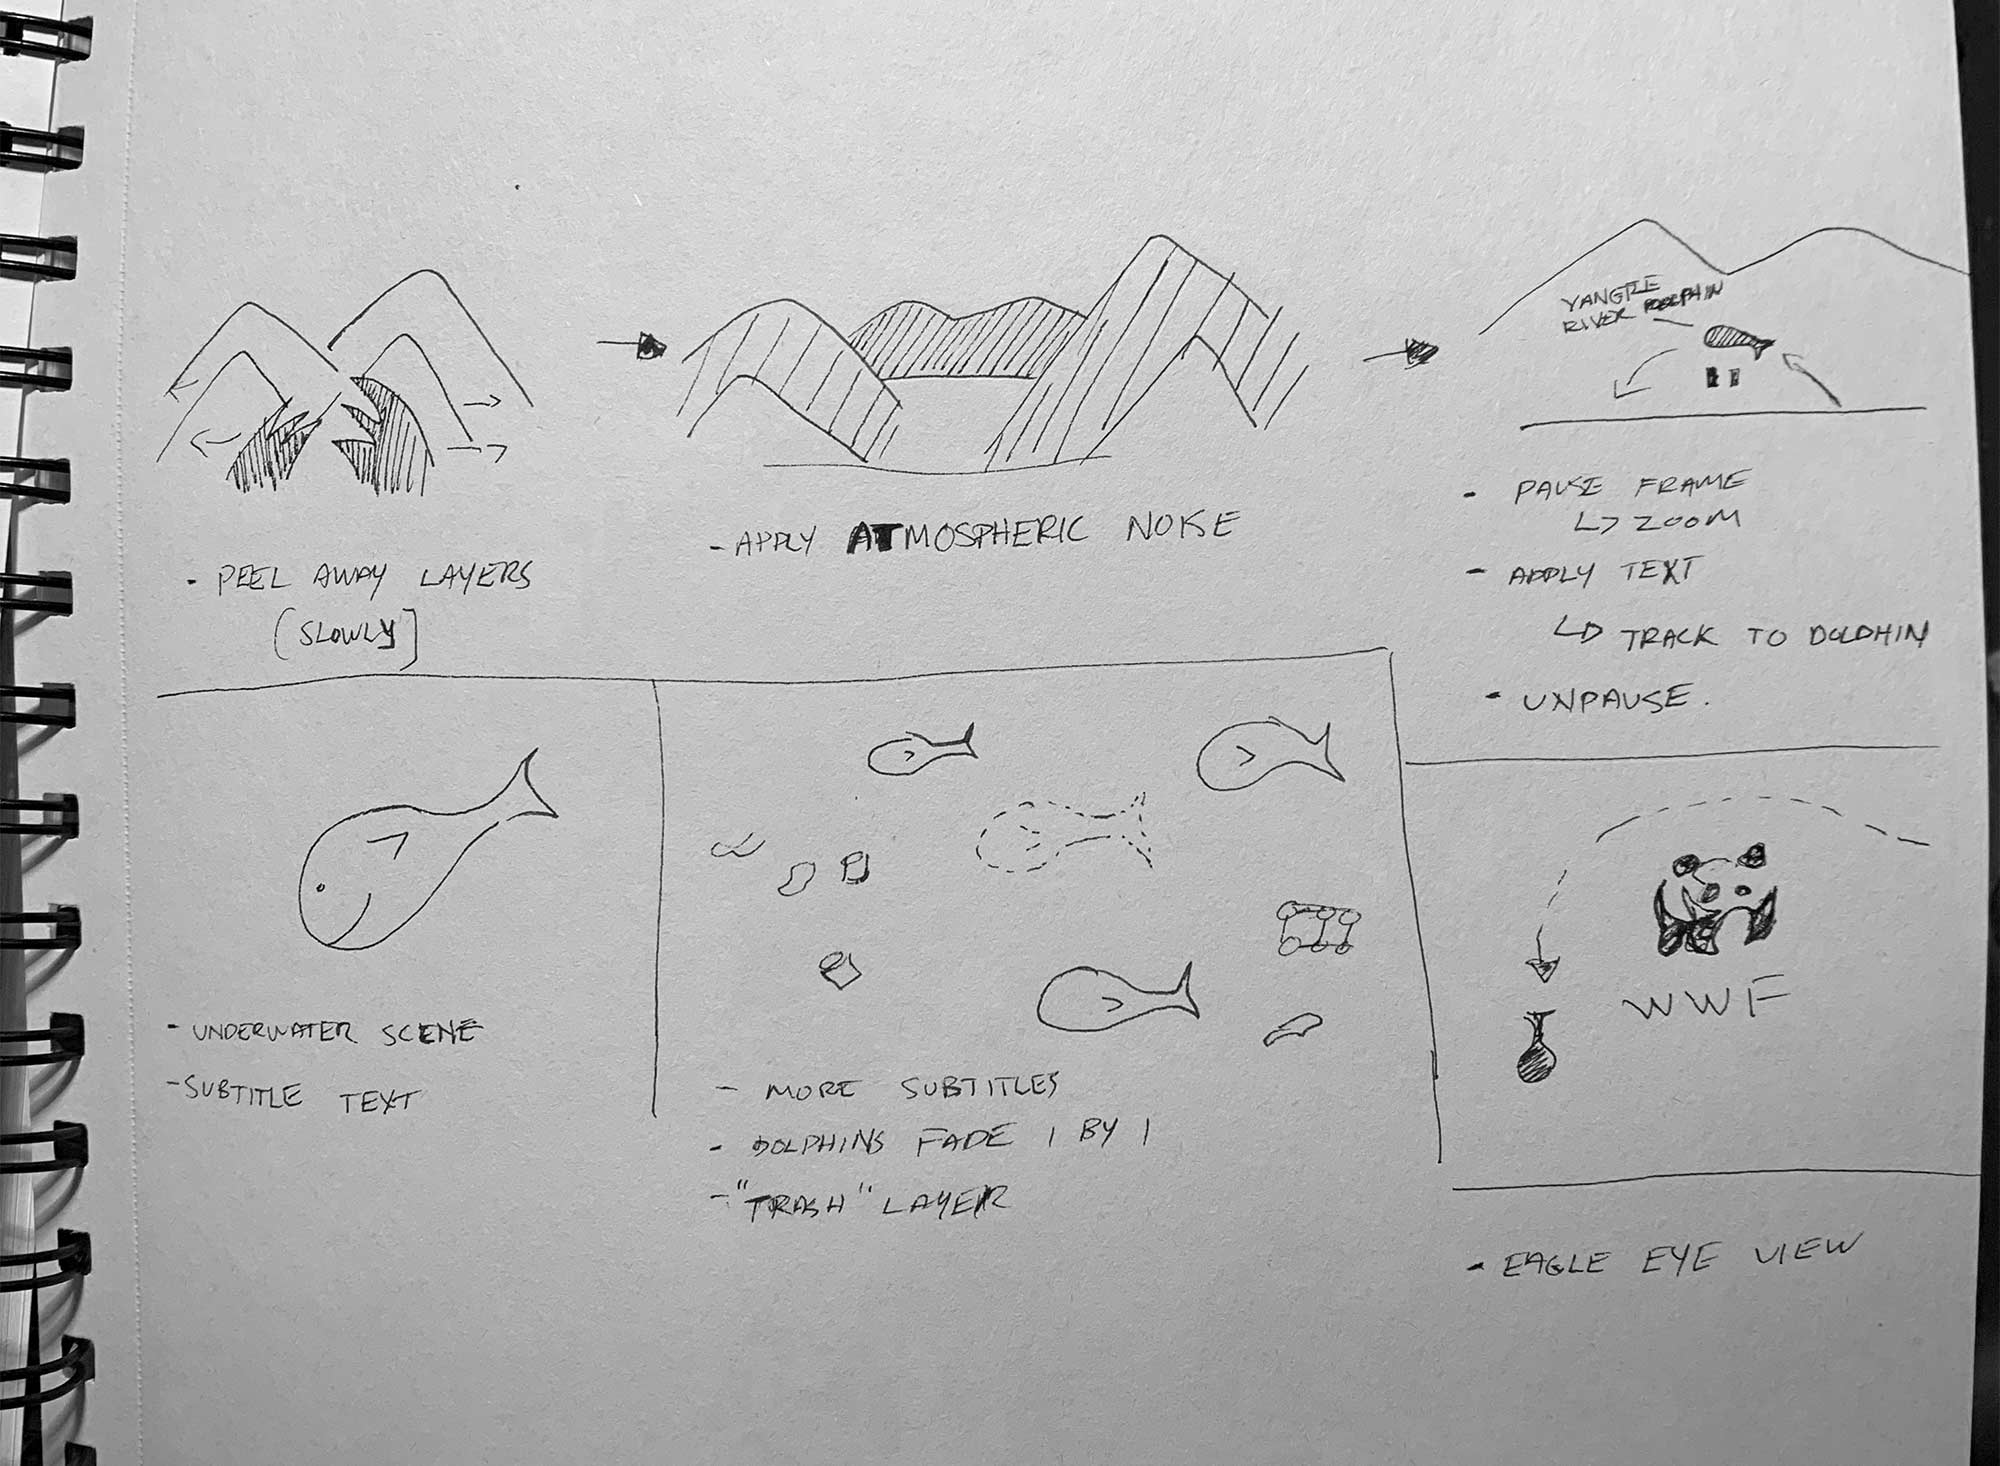 - PEEL AWAY LAYERS
(SLOWLY]
- APPLY ATMOSPHERIC NOISE
YANGTZE
RIVER DOLPHIN
- PAUSE FRAME
↳ ZOOM
- APPLY TEXT
↳ TRACK TO DOLPHIN
- UNPAUSE.
- UNDERWATER SCENE
- SUBTITLE TEXT
- MORE SUBTITLES
- DOLPHINS FADE 1 BY 1
- "TRASH" LAYER
WWF
- EAGLE EYE VIEW